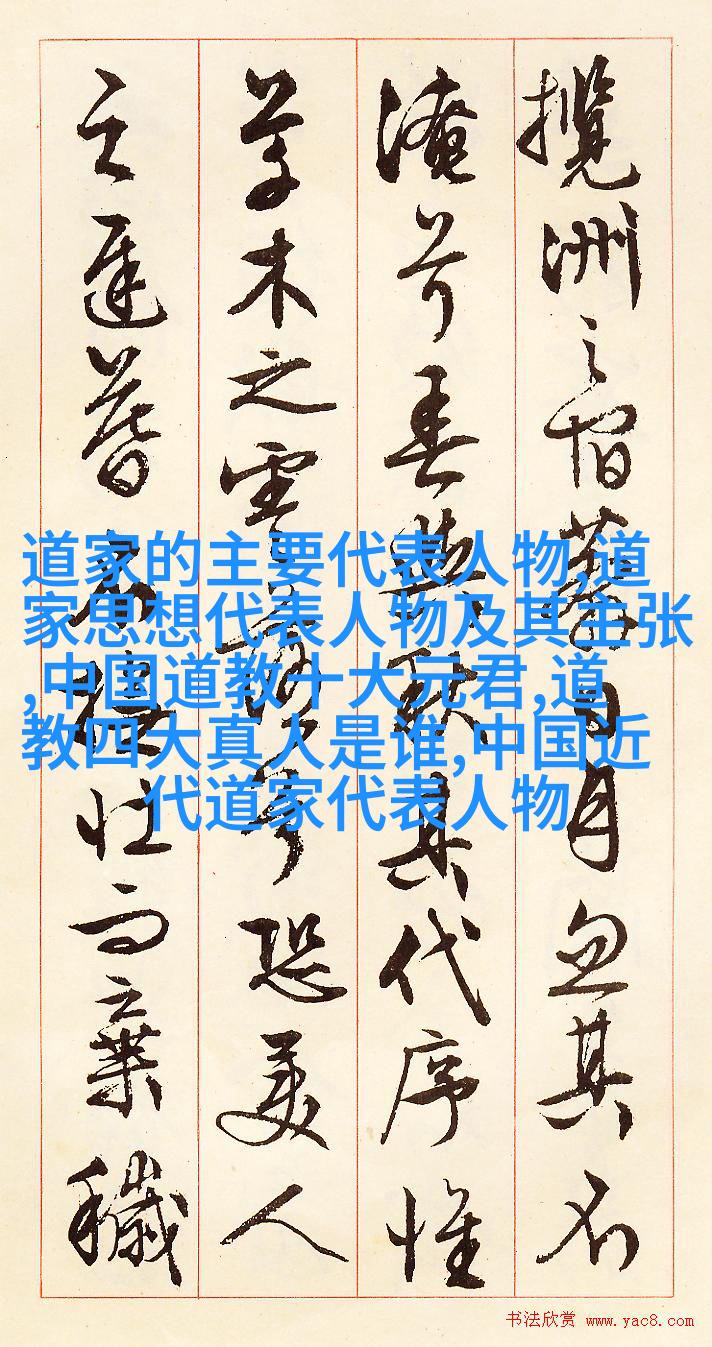 攬洲之宿莽日月忽其不
淹兮春與秋其代序惟
草木之零落兮恐美人
之遲暮不撫壯而棄穢
道家的主要代表人物,道
家思想代表人物及其主张
,中国道教十大元君,道
教四大真人是谁,中国近
代道家代表人物
书法欣赏 www.yac8.com